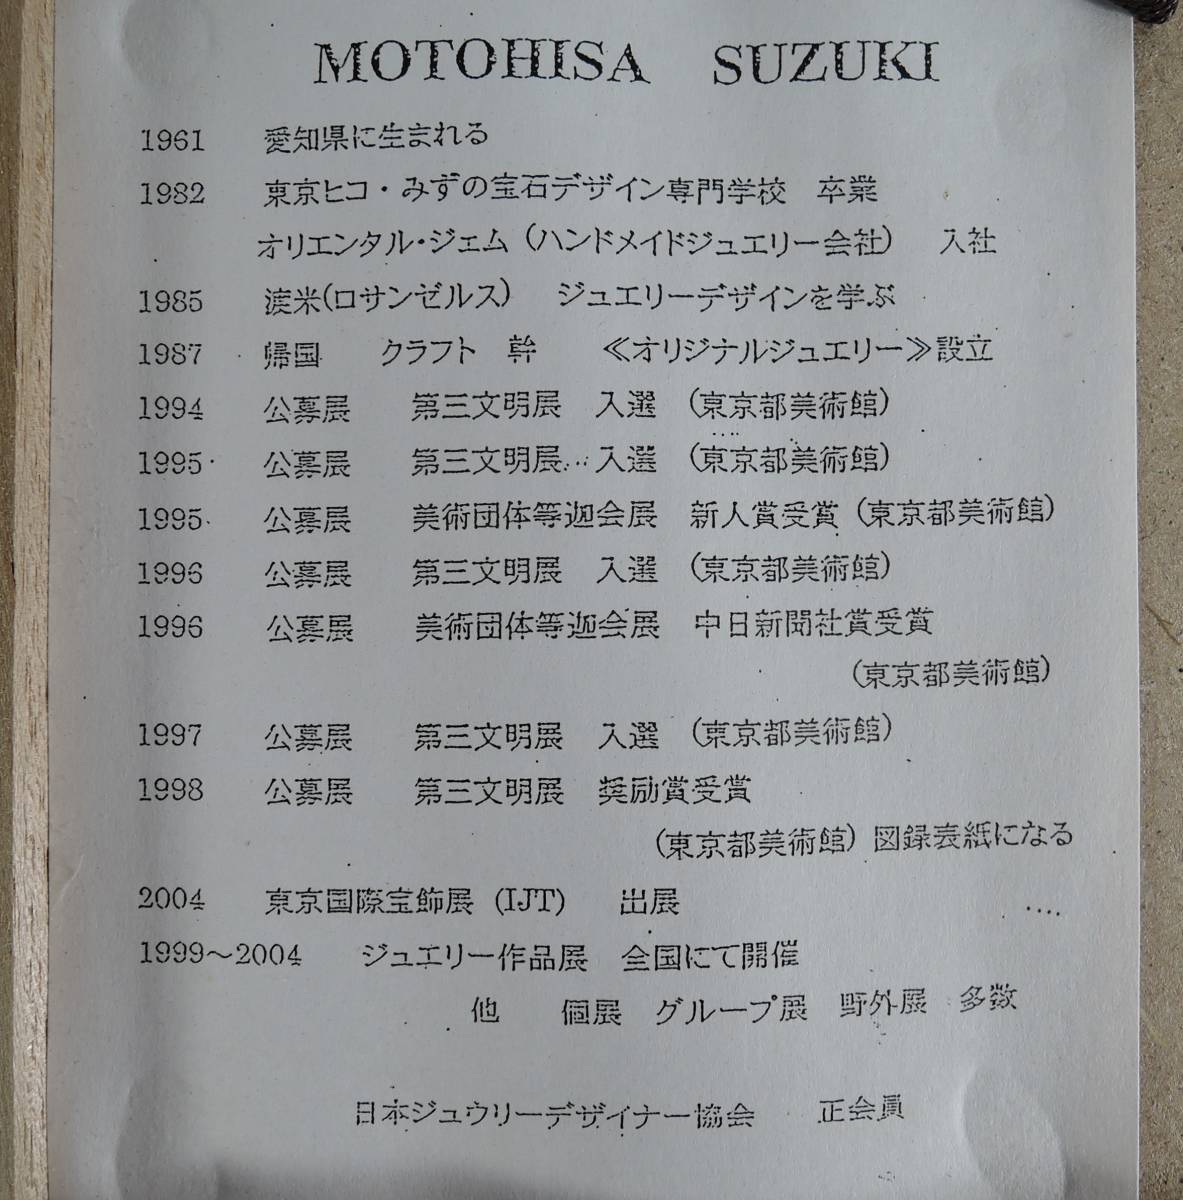 MOTOHISA SUZUKI
1961 愛知県に生まれる
1982 東京ヒコ・みずの宝石デザイン専門学校 卒業
オリエンタル・ジェム (ハンドメイドジュエリー会社) 入社
1985 渡米(ロサンゼルス) ジュエリーデザインを学ぶ
1987 帰国 クラフト 幹 ≪オリジナルジュエリー≫設立
1994 公募展 第三文明展 入選 (東京都美術館)
1995 公募展 第三文明展 入選 (東京都美術館)
1995 公募展 美術団体等迦会展 新人賞受賞 (東京都美術館)
1996 公募展 第三文明展 入選 (東京都美術館)
1996 公募展 美術団体等迦会展 中日新聞社賞受賞
(東京都美術館)
1997 公募展 第三文明展 入選 (東京都美術館)
1998 公募展 第三文明展 奨励賞受賞
(東京都美術館) 図録表紙になる
2004 東京国際宝飾展 (IJT) 出展
1999～2004 ジュエリー作品展 全国にて開催
他 個展 グループ展 野外展 多数
日本ジュウリーデザイナー協会 正会員